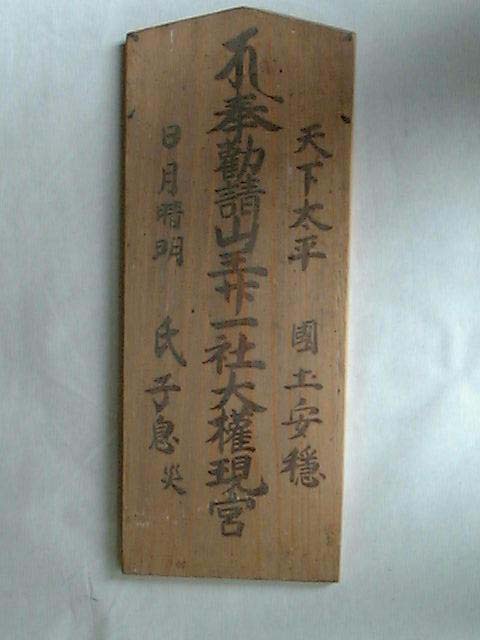 天下太平　國土安穩
奉勸請山王廿一社大權現宮
日月晴明　氏子息災